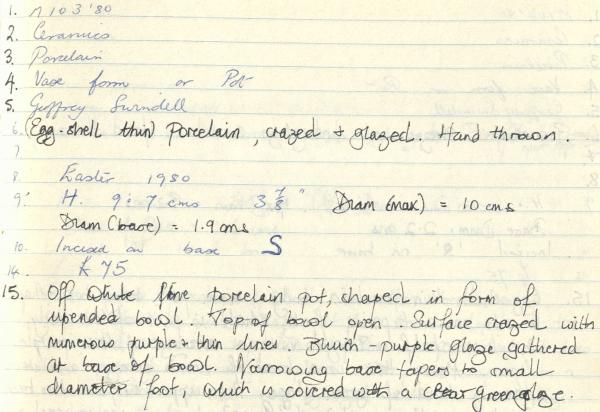 1. M103'80
2. Ceramics
3. Porcelain
4. Vase form or Pot
5. Geoffrey Swindell
6. (Egg-shell thin) Porcelain, crazed + glazed. Hand thrown.
7.
8. Easter 1980
9. H. 9.7 cms 3 7/8" Diam (max) = 10 cms
Diam (base) = 1.9 cms
10. Incised on base S
14. £75
15. Off White fine porcelain pot, shaped in form of
upended bowl. Top of bowl open. Surface crazed with
numerous purple + thin lines. Bluish-purple glaze gathered
at base of bowl. Narrowing base tapers to small
diameter foot which is covered with a clear green glaze.